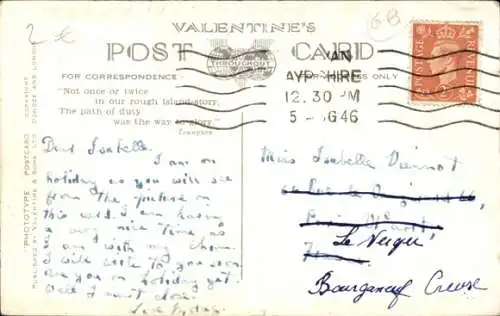 2 €
6B
VALENTINE'S
POST CARD
THROUGHOUT
FOR CORRESPONDENCE
ONLY
"Not once or twice
in our rough island-story,
The path of duty
was the way to glory."
Tennyson
AYR-HIRE
12.30 PM
5- G46
POSTAGE REVENUE
"PHOTOTYPE" POSTCARD
PUBLISHED BY VALENTINE & SONS LTD. DUNDEE AND LONDON
COPYRIGHT
Dear Isabelle, I am on
holiday as you will see
from the picture on
this card. I am having
a very nice time as
I am with my chum.
I will write to you soon
Are you on holiday yet
Well I must close.
Love
Miss Isabelle Viennot
Le Verger
Bourganeuf Creuse